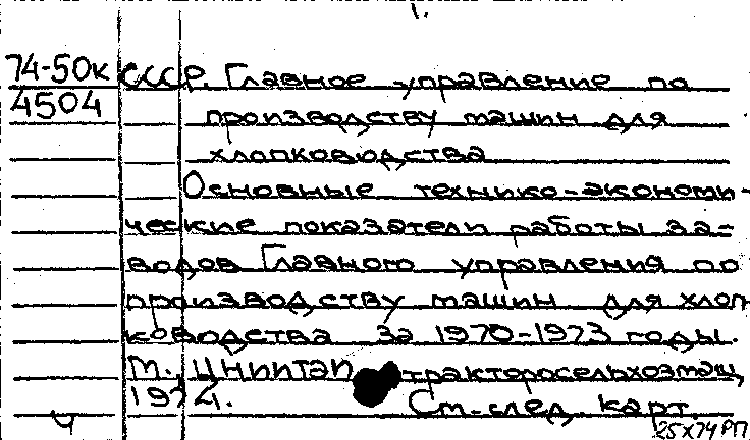 74-50к СССР. Главное управление по
4504 производству машин для
хлопководства
Основные технико-экономи-
ческие показатели работы за-
водов Главного управления по
производству машин для хлоп
ководства за 1970-1973 годы.
М., ЦНИИТЭИ тракторосельхозмаш,
1974. См. след. карт.
4 25 X 74 РП